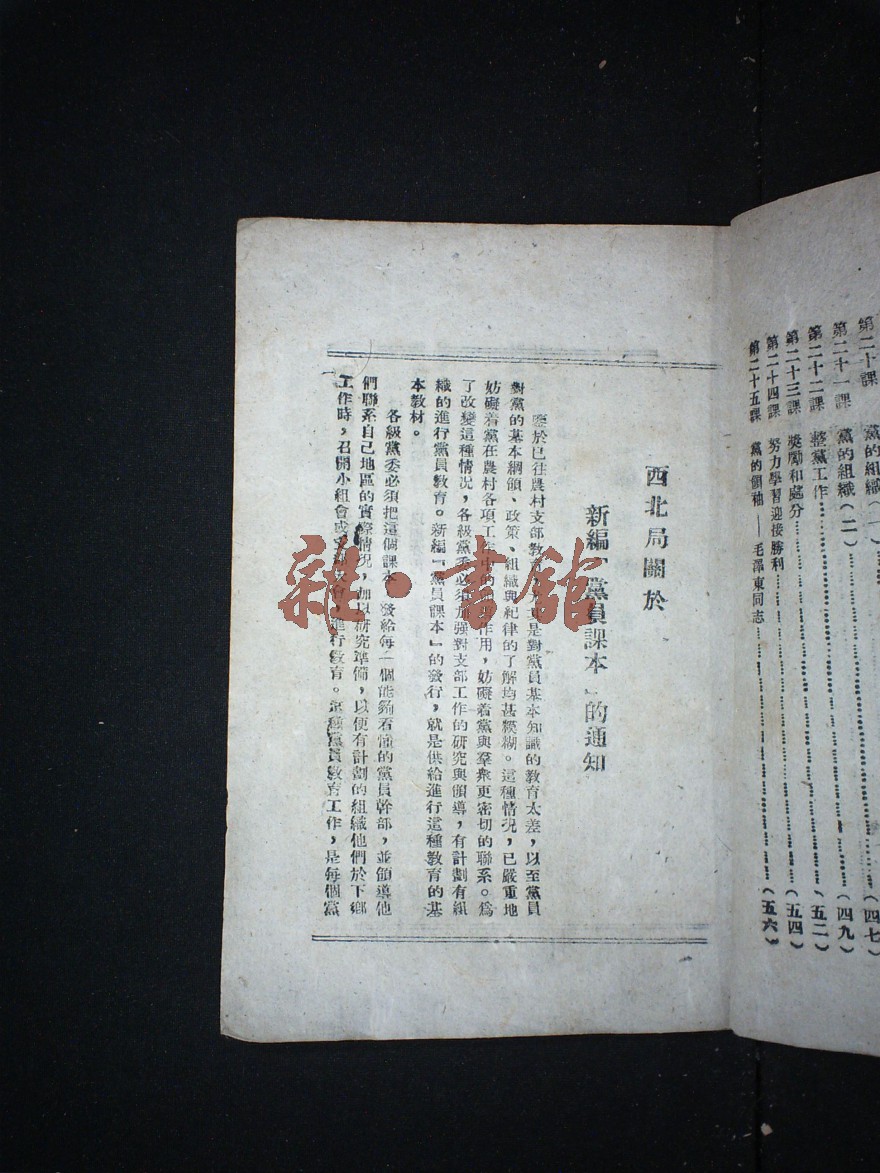 第二十課 黨的組織（一）……（四七）
第二十一課 黨的組織（二）……（四九）
第二十二課 黨工作……（五二）
第二十三課 獎勵和處分……（五四）
第二十四課 努力學習迎接勝利……
第二十五課 黨的領袖——毛澤東同志……（五六）
西北局關於
新編「黨員課本」的通知
鑒於已往農村支部教育，是對黨員基本知識的教育太差，以至黨員
對黨的基本綱領、政策、組織與紀律的了解均甚模糊。這種情況，已嚴重地
妨礙着黨在農村各項工作中的作用，妨礙着黨與羣衆更密切的聯系。爲
了改變這種情況，各級黨委必須加強對支部工作的研究與領導，有計劃有組
織的進行黨員教育。新編「黨員課本」的發行，就是供給進行這種教育的基
本教材。
各級黨委必須把這個課本，發給每一個能夠看懂的黨員幹部，並領導他
們聯系自己地區的實際情況，加以研究準備，以便有計劃的組織他們於下鄉
工作時，召開小組會或支部大會，進行教育。這種黨員教育工作，是每個黨
雜·書館